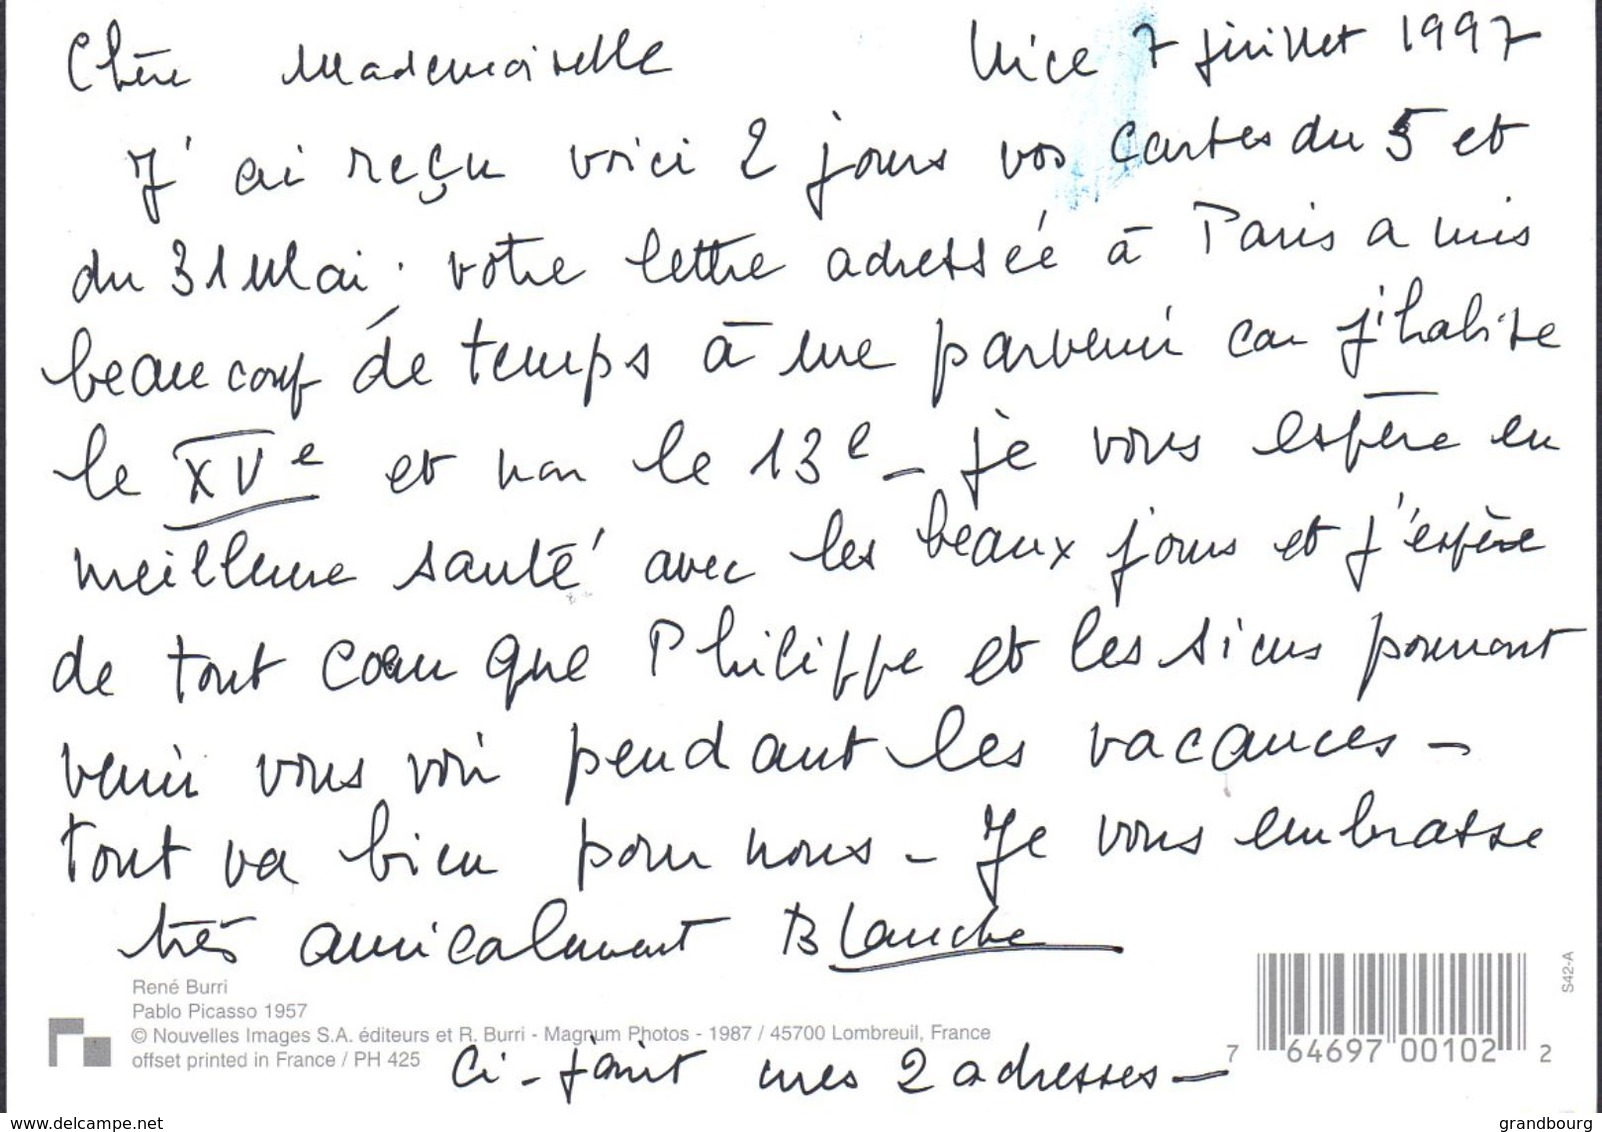 Chère Mademoiselle Nice 7 juillet 1997
J'ai reçu voici 2 jours vos cartes du 5 et
du 31 Mai. votre lettre adressée à Paris a mis
beaucoup de temps à me parvenir car j'habite
le XVe et non le 13e - je vous espère en
meilleure santé avec les beaux jours et j'espère
de tout coeur que Philippe et les siens pourront
venir vous voir pendant les vacances -
tout va bien pour nous - Je vous embrasse
très amicalement Blanche
René Burri
Pablo Picasso 1957
© Nouvelles Images S.A. éditeurs et R. Burri - Magnum Photos - 1987 / 45700 Lombreuil, France
offset printed in France / PH 425
Ci-joint mes 2 adresses -
S42-A
7 64697 00102 2
www.delcampe.net grandbourg